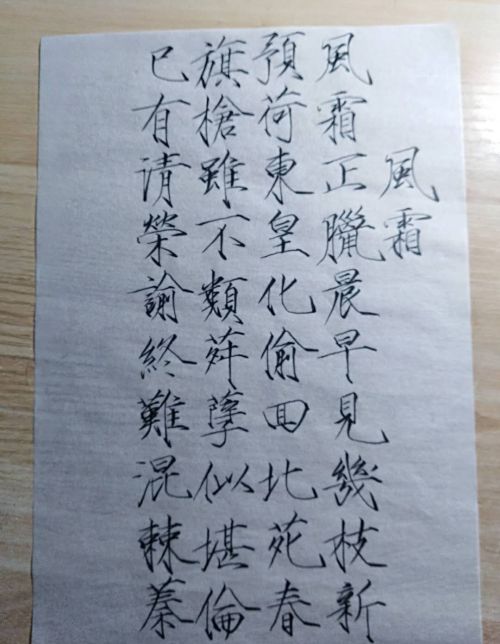 風霜
風霜正臘晨早見幾枝新
預荷東皇化偷回北苑春
旗槍雖不類荈孽似堪倫
已有清榮諭終難混棘蓁